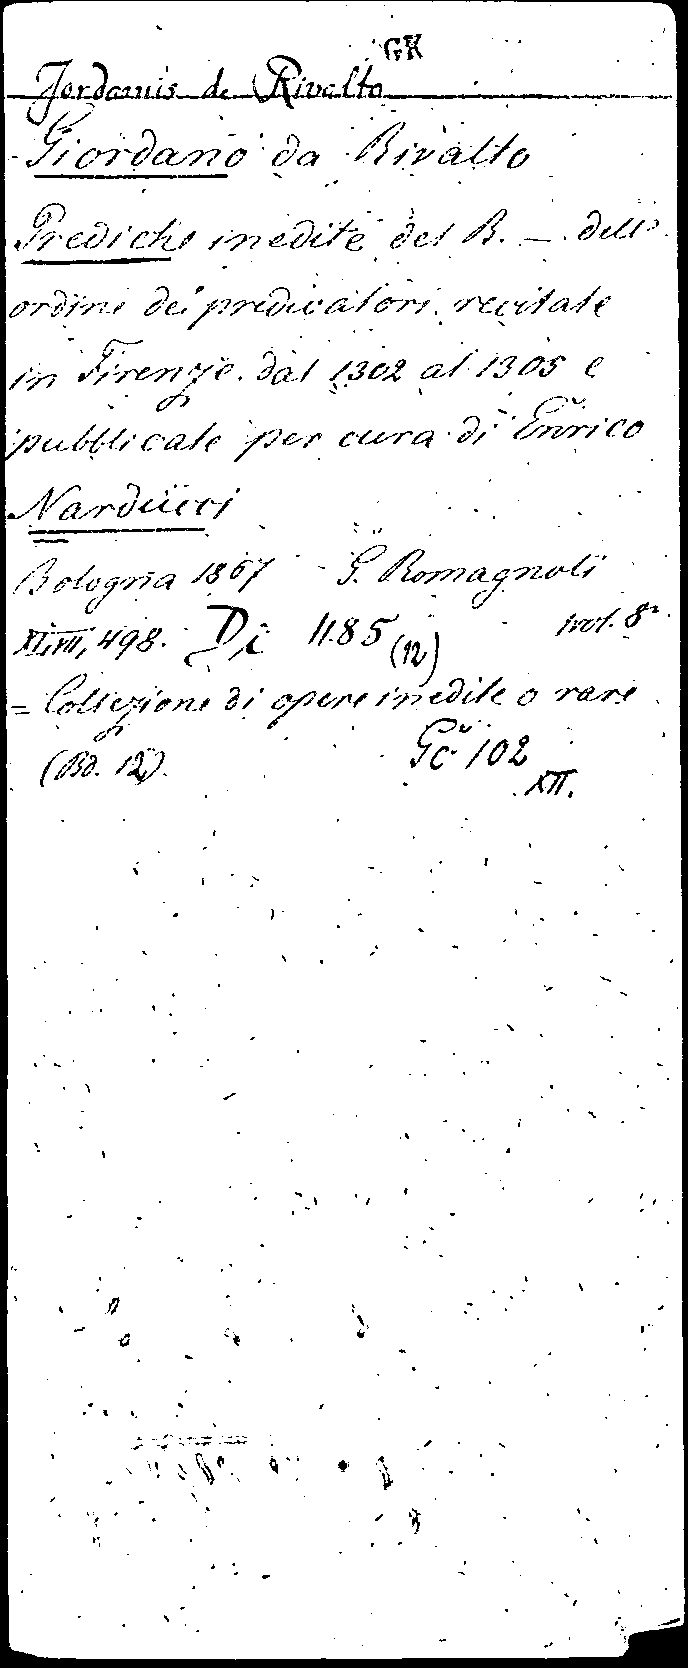 GK
Jordanis de Rivalto
Giordano da Rivalto
Prediche inedite del B. — dell'
ordine dei predicatori, recitate
in Firenze dal 1302 al 1305 e
pubblicate per cura di Enrico
Narducci
Bologna 1867 G. Romagnoli
XLVII, 498. Di 1185 (12) 8°
= Collezione di opere inedite o rare
(Bd. 12). Gc 102
XII.